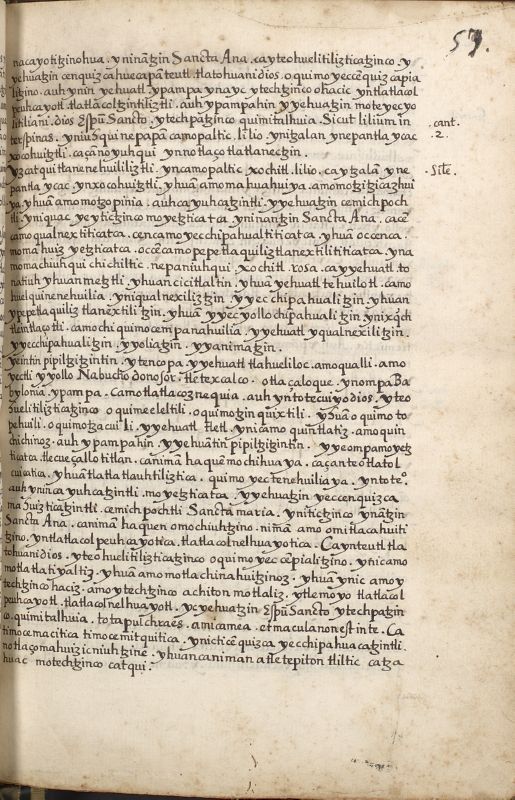 57.
nacayotitzinohua. yninãtzin Sancta Ana. cayteohuelitiliztica tzinco. y
yehuatzin cenquizcahuecapã teutl. tlatohuani dios. oquimoyeccẽquizcapia
litzino. auh ynin yehuatl ypampa ynayc ytechtzinco ohacic yntlatlacol
peuhcayotl. tlatlãcoltzintiliztli. auh ypampahin yyehuatzin moteyecyo
litiliani. dios Espũ Sancto. ytechpatzinco quimitalhuia. Sicut lilium in
ter spinas. yniuhqui nepapã camopaltic. lilio. ynitzalan ynepantla ycac
xocohuitztli. caçãno yuhqui ynnotlaço tlatlanectzin.
yz catqui tlanenehuililiztli. yncamopaltic xochitl. lilio. caytzalã yne
pantla ycac ynxocohuitztli. yhuã amo mahuahuiya. amo motzitzicazhui
ya. yhuã amo motzopinia. auh ca yuhcatzintli. yyehuatzin cemichpoch
tli. yniquac yeyticẽtzinco moyetzticatca yninantzin Sancta Ana. cacẽ
camo qualnextiticatca. cenca moyecchipahualtiticatca. yhuã occenca.
momahuizyetzticatca. occẽca mopepetlaquiliztlanextilititicatca. yna
momachiuhqui chichiltic. nepaniuhqui. xochitl. rosa. cayyehuatl. to
natiuh yhuan metztli. yhuan cicitlaltin. yhuã yehuatl tehuilotl. camo
huel quinenehuilia. yniqualnexilitzin. yyecchipahualitzin. yhuan
ypepetlaquiliztlanextiltzin. yhuã yyecyollochipahualitzin ynixq̃ch
tlein tlaçotli. camochi quimocempanahuilia. yyehuatl yqualnexilitzin.
yyecchipahualitzin. yyoliatzin. yyanimatzin.
yeintin pipiltzitzintin. ytencopa yyehuatl tlahueliloc. amo qualli. amo
yectli yyollo Nabuchodonosor. tletexcalco. otlaçaloque. ynompa Ba
bylonia. ypampa. camotlatlacoznequia. auh yn totecuiyo dios. yteo
huelitiliztica tzinco oquimeeleltili. oquimotzinquixtili. yhuã oquimoto
pehuili. oquimotzacuili. yyehuatl tletl. ynic amo quintlatiz. amo quin
chichinoz. auh ypampahin yyehuãtin pipiltzitzintin. yyeompa moyetz
ticatca. tlecueçallotitlan. canimã haquẽ mochihuaya. caçanteotlatol
cuicatica. yhuã tlatlatlauhtiliztica. quimoyectenehuiliaya. ynteoº.
auh ynin ca yuhcatzintli. moyetzticatca. yyehuatzin yeccenquizca
mahuiztic atzintli. cemichpochtli Sancta maria. yniticẽtzinco ynãtzin
Sancta Ana. canimã haquen omochiuhtzino. nimã amo omitlacahuiti
tzino. yntlatlacolpeuhcayotica. tlatlacolnelhuayotica. Caynteutl tla
tohuani dios. yteohuelitiliztica tzinco oquimoyeccẽpialitzino. ynic amo
motlatlatiyaltiz. yhuã amo motlachinahuitzinoz. yhuã ynic amo y
techtzinco haciz. amo ytechtzinco achiton motlaliz. ytlemoyo tlatlacol
peuhcayotl. tlatlacolnelhuayotl. ycyehuatzin Espũ Sancto ytechpatzin
co. quimitalhuia. tota pulchra es. amica mea. et macula non est in te. Ca
timocemacitica timocemitquitica. ynicticẽquizca yecchipahuacatzintli.
notlaçomahuizicniuhtzine. yhuan caniman atle tepiton tliltic catza
huac motechtzinco catqui.
.cant.
.2.
.Sile.